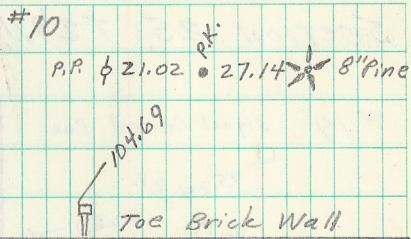 #10
P.K.
P.P. 21.02 27.14 8"Pine
104.69
Toe Brick Wall